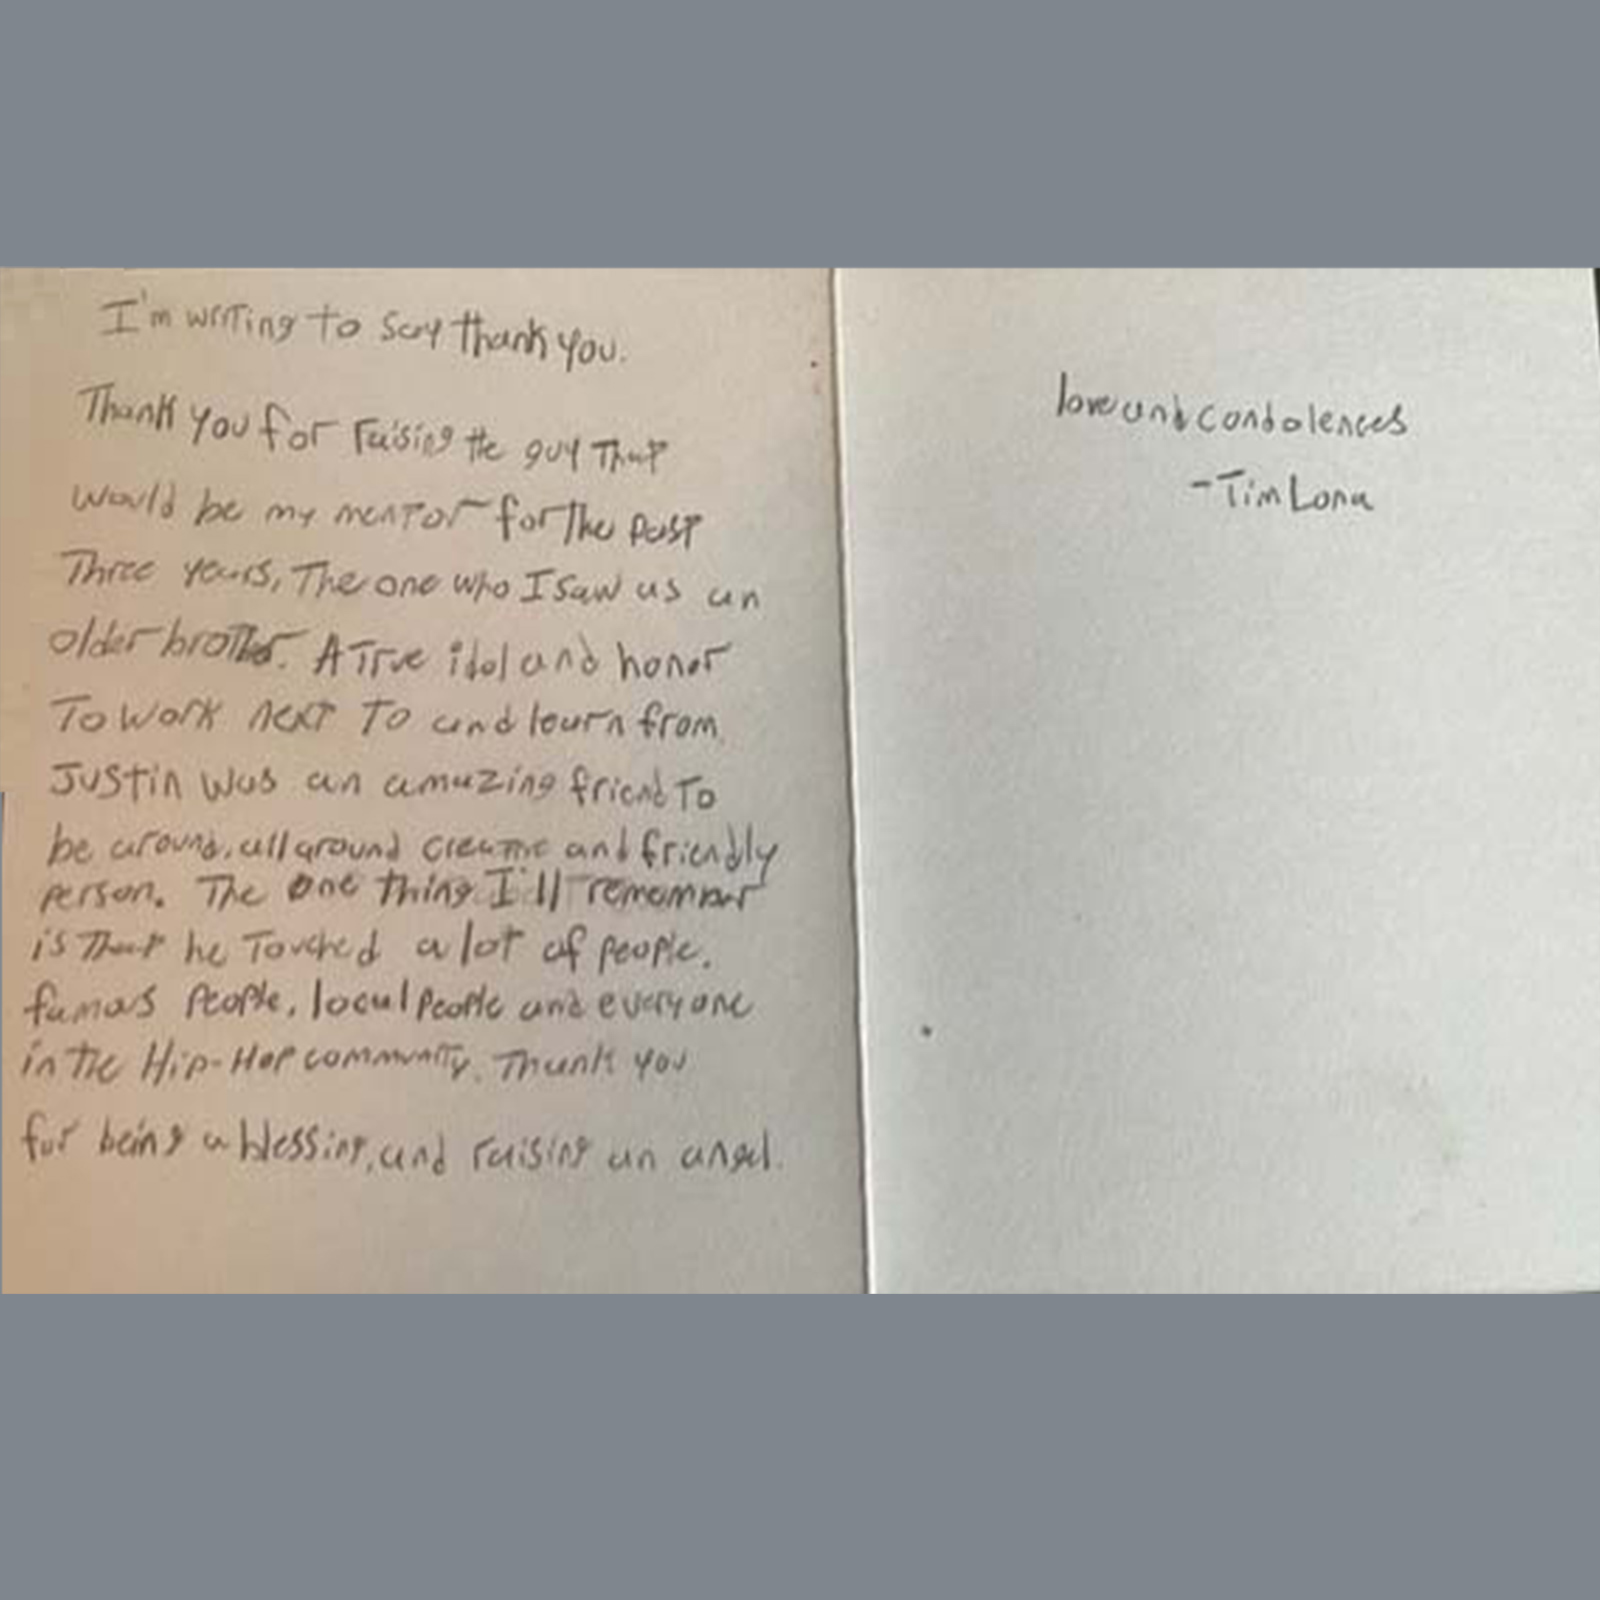 I'm writing to say thank you.
Thank you for raising the guy that
would be my mentor for the past
Three years, The one who I saw as an
older brother. A True idol and honor
To work next To and learn from.
Justin was an amazing friend To
be around, all around creative and friendly
person. The one thing I'll remember
is That he Touched a lot of people.
famous People, local People and everyone
in the Hip-Hop community. Thank you
for being a blessing, and raising an angel.
love and condolences
-Tim Lona